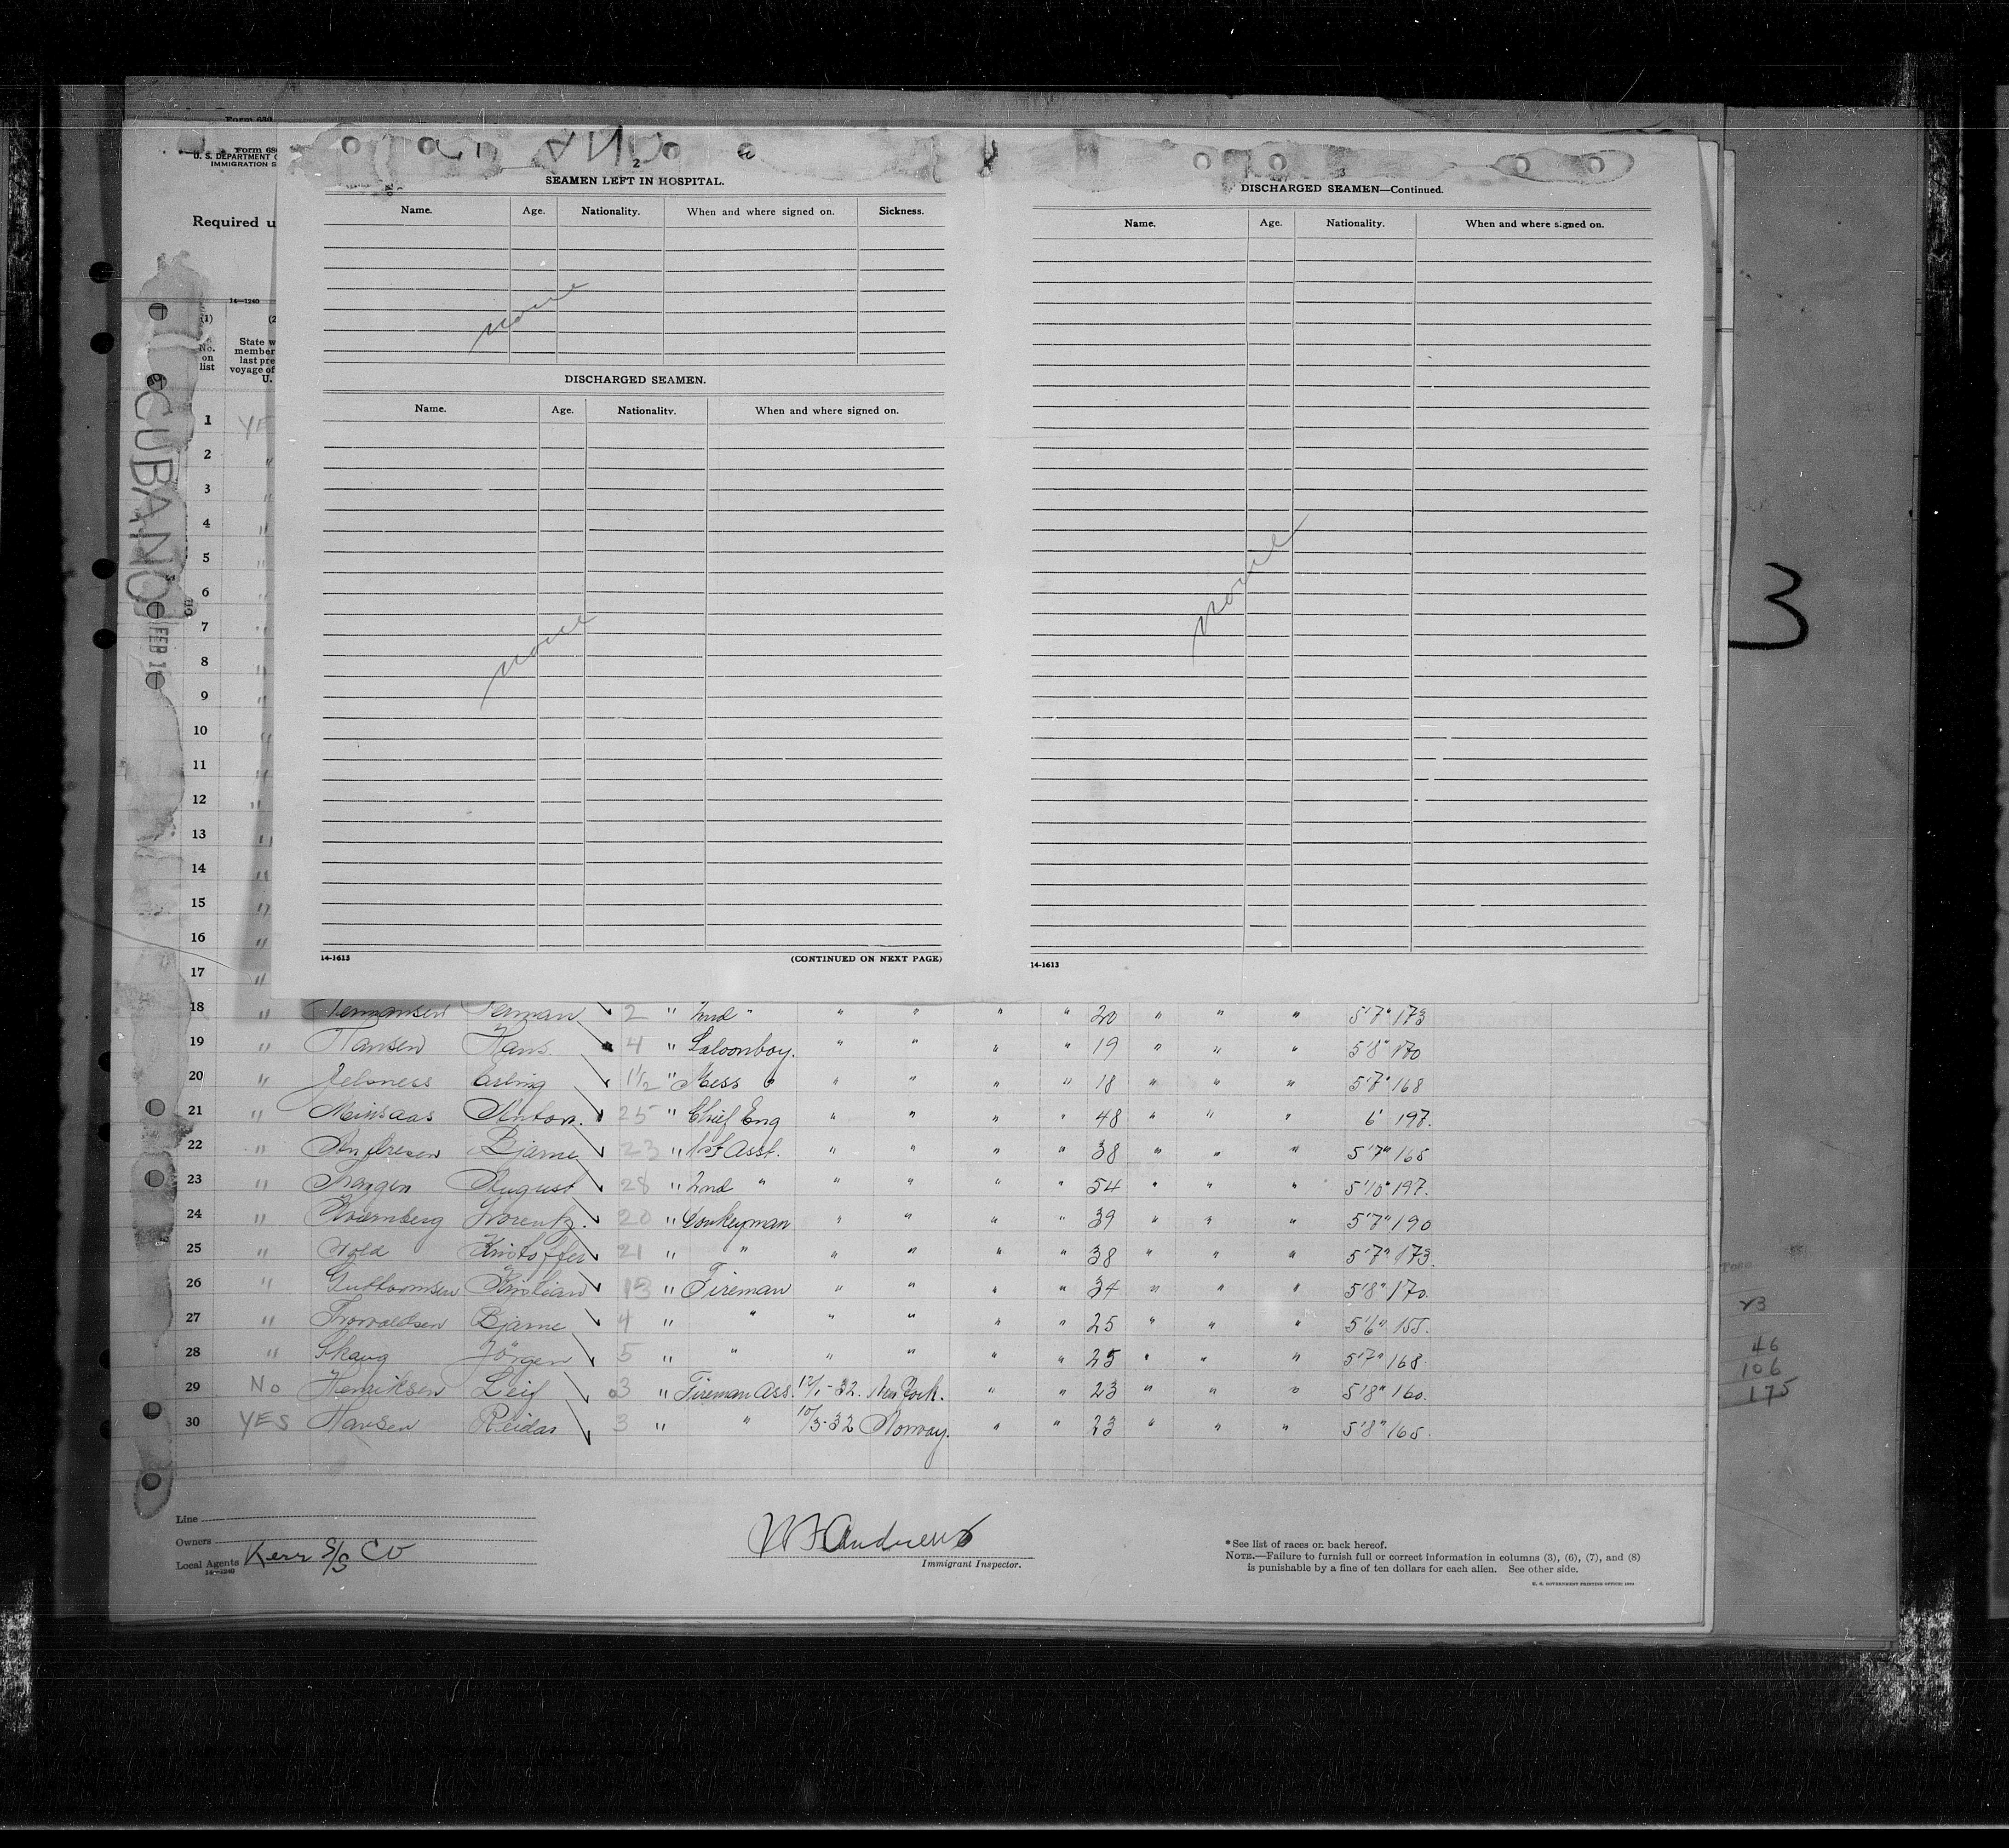 Form 689
Form 68
U. S. DEPARTMENT O
IMMIGRATION S
Required u
14—1240
(1)
No. on list
(2
State w
member
last pre
voyage of
U.
CUBANO
FEB 1
2
SEAMEN LEFT IN HOSPITAL.
Name. Age. Nationality. When and where signed on. Sickness.
none
DISCHARGED SEAMEN.
Name. Age. Nationality. When and where signed on.
none
14-1613 (CONTINUED ON NEXT PAGE)
3
DISCHARGED SEAMEN—Continued.
Name. Age. Nationality. When and where signed on.
none
14-1613
3
1 YE
2 "
3 "
4 "
5 "
6 "
7 "
8 "
9 "
10 "
11 "
12 "
13 "
14 "
15 "
16 "
17 "
18 " Hermansen Herman 2 " 2nd " " " " " 20 " " " 5'7" 173
19 " Hansen Hans 4 " Saloonboy. " " " " 19 " " " 5'8" 170
20 " Erling 1 1/2 " Mess " " " " " 18 " " " 5'7" 168
21 " Minsaas Anton. 25 " Chief Eng " " " " 48 " " " 6' 197.
22 " Andresen Bjarne 23 " 1st Asst. " " " " 38 " " " 5'7" 165
23 " August 28 " 2nd " " " " " 54 " " " 5'10" 197.
24 " Kvernberg Lorentz. 20 " Donkeyman " " " " 39 " " " 5'7" 190
25 " Wold Kristoffer 21 " " " " " " 38 " " " 5'7" 173.
26 " Guttormsen Kristian 13 " Fireman " " " " 34 " " " 5'8" 170.
27 " Thorvaldsen Bjarne 4 " " " " " " 25 " " " 5'6" 155.
28 " Skaug Jörgen 5 " " " " " " 25 " " " 5'7" 168.
29 No Henriksen Leif 3 " Fireman Ass. 12/1-32. New York. " " 23 " " " 5'8" 160.
30 YES Hansen Reidar 3 " " 10/3-32 Norway. " " 23 " " " 5'8" 165.
23
46
106
175
Line
Owners
Local Agents Kerr S/S Co
14—1240
W F Andrews
Immigrant Inspector.
*See list of races on back hereof.
NOTE.—Failure to furnish full or correct information in columns (3), (6), (7), and (8)
is punishable by a fine of ten dollars for each alien. See other side.